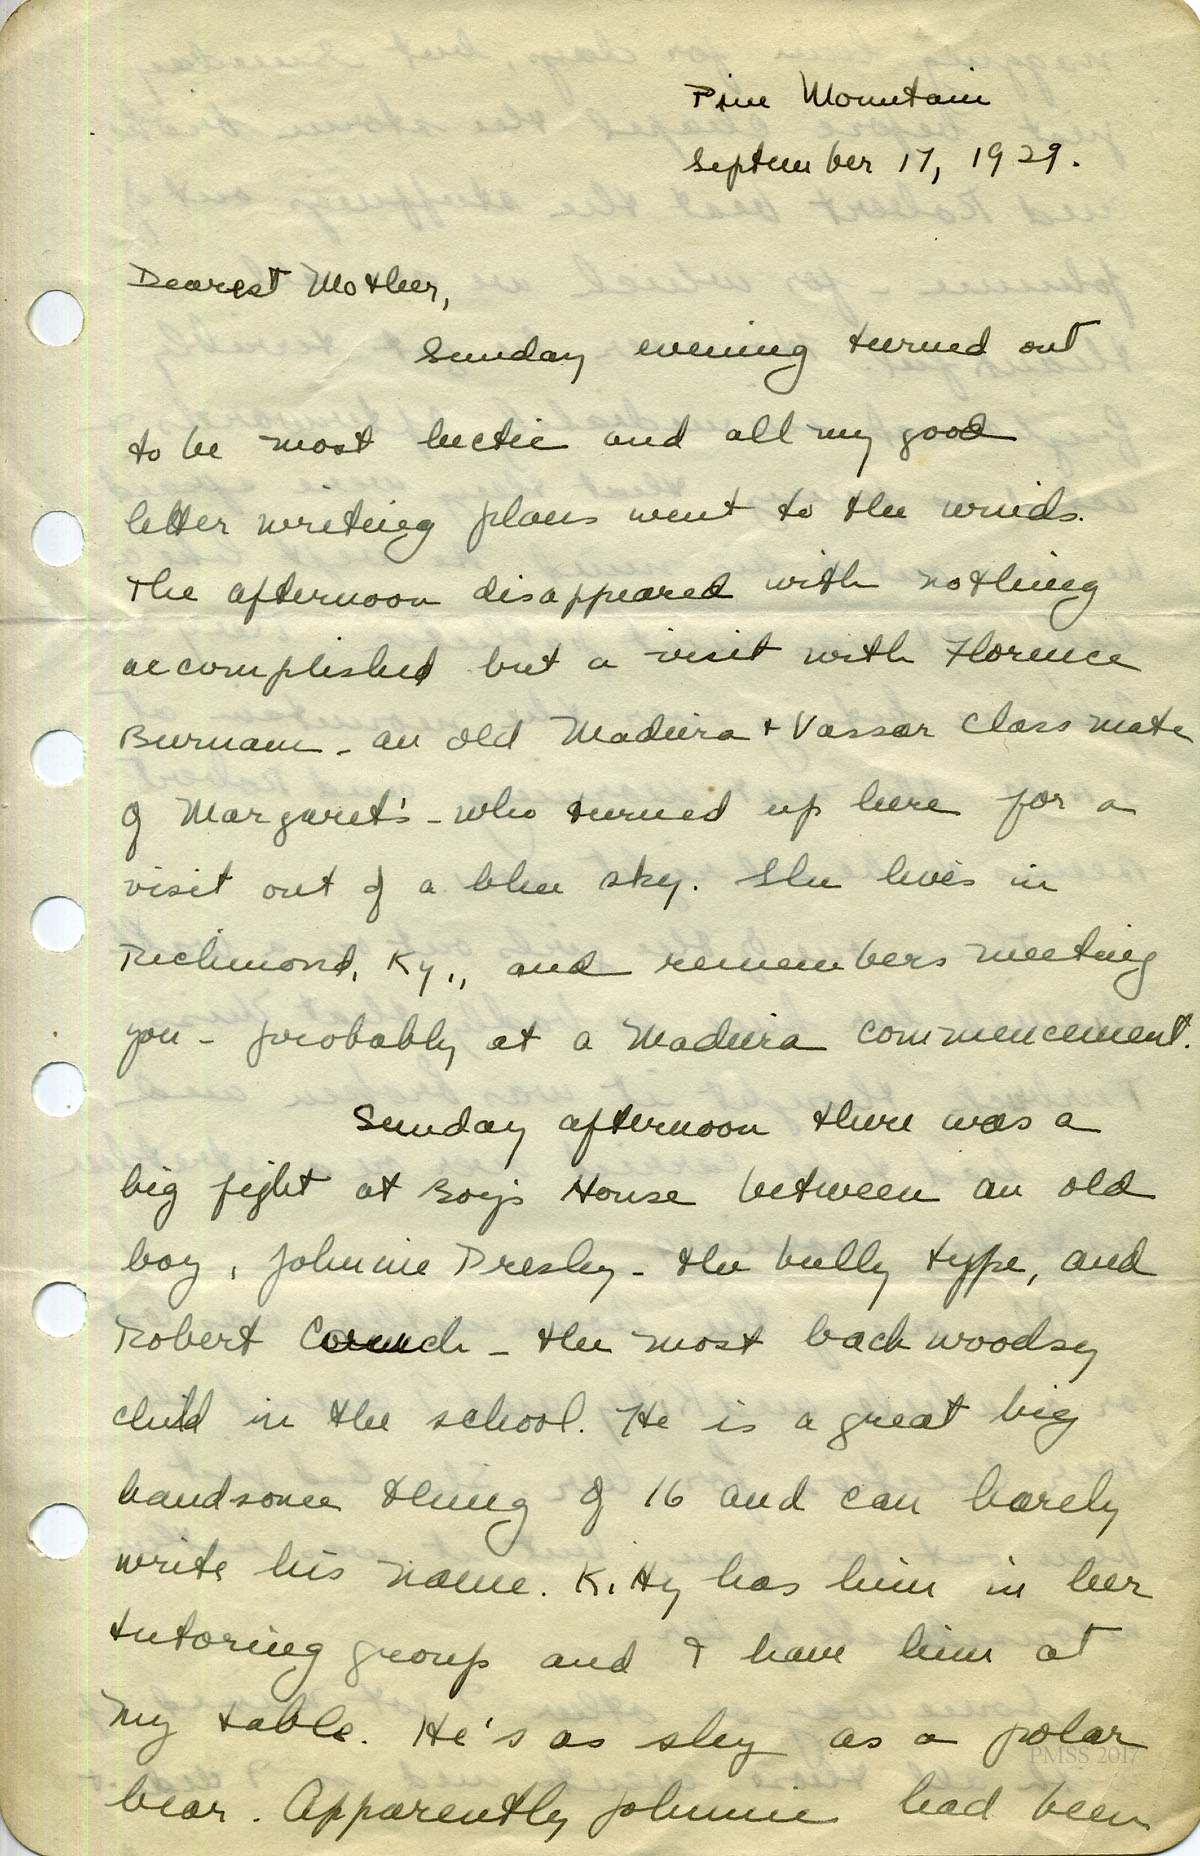 Pine Mountain
September 17, 1929.
Dearest Mother,
Sunday evening turned out
to be most hectic and all my good
letter writing plans went to the winds.
The afternoon disappeared with nothing
accomplished but a visit with Florence
Burnam - an old Madeira + Vassar class mate
of Margaret's - who turned up here for a
visit out of a blue sky. She lives in
Richmond, Ky., and remembers meeting
you - probably at a Madeira commencement.
Sunday afternoon there was a
big fight at Boy's House between an old
boy, Johnnie Presley - the bully type, and
Robert - the most back woodsy
child in the school. He is a great big
handsome thing of 16 and can barely
write his name. Kitty has him in her
tutoring group and I have him at
my table. He's as shy as a polar
bear. Apparently Johnnie had been
PMSS 2017